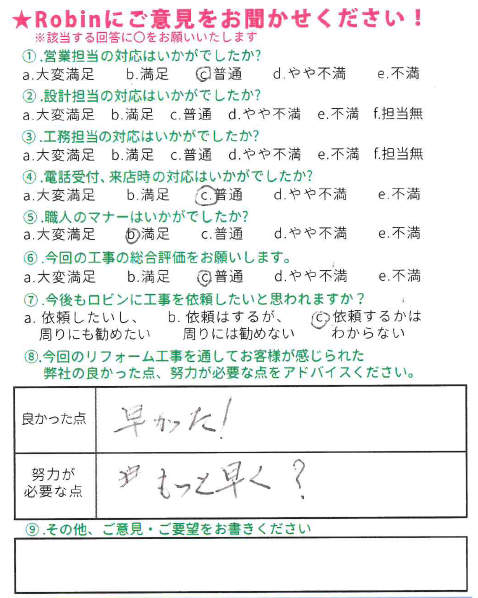 ★Robinにご意見をお聞かせください！
※該当する回答に○をお願いいたします
①.営業担当の対応はいかがでしたか?
a.大変満足 b.満足 c.普通 d.やや不満 e.不満
②.設計担当の対応はいかがでしたか?
a.大変満足 b.満足 c.普通 d.やや不満 e.不満 f.担当無
③.工務担当の対応はいかがでしたか?
a.大変満足 b.満足 c.普通 d.やや不満 e.不満 f.担当無
④.電話受付、来店時の対応はいかがでしたか?
a.大変満足 b.満足 c.普通 d.やや不満 e.不満
⑤.職人のマナーはいかがでしたか?
a.大変満足 b.満足 c.普通 d.やや不満 e.不満
⑥.今回の工事の総合評価をお願いします。
a.大変満足 b.満足 c.普通 d.やや不満 e.不満
⑦.今後もロビンに工事を依頼したいと思われますか？
a. 依頼したいし、 b. 依頼はするが、 c. 依頼するかは
周りにも勧めたい 周りには勧めない わからない
⑧.今回のリフォーム工事を通してお客様が感じられた
弊社の良かった点、努力が必要な点をアドバイスください。
良かった点 早かった!
努力が
必要な点 もっと早く?
⑨.その他、ご意見・ご要望をお書きください